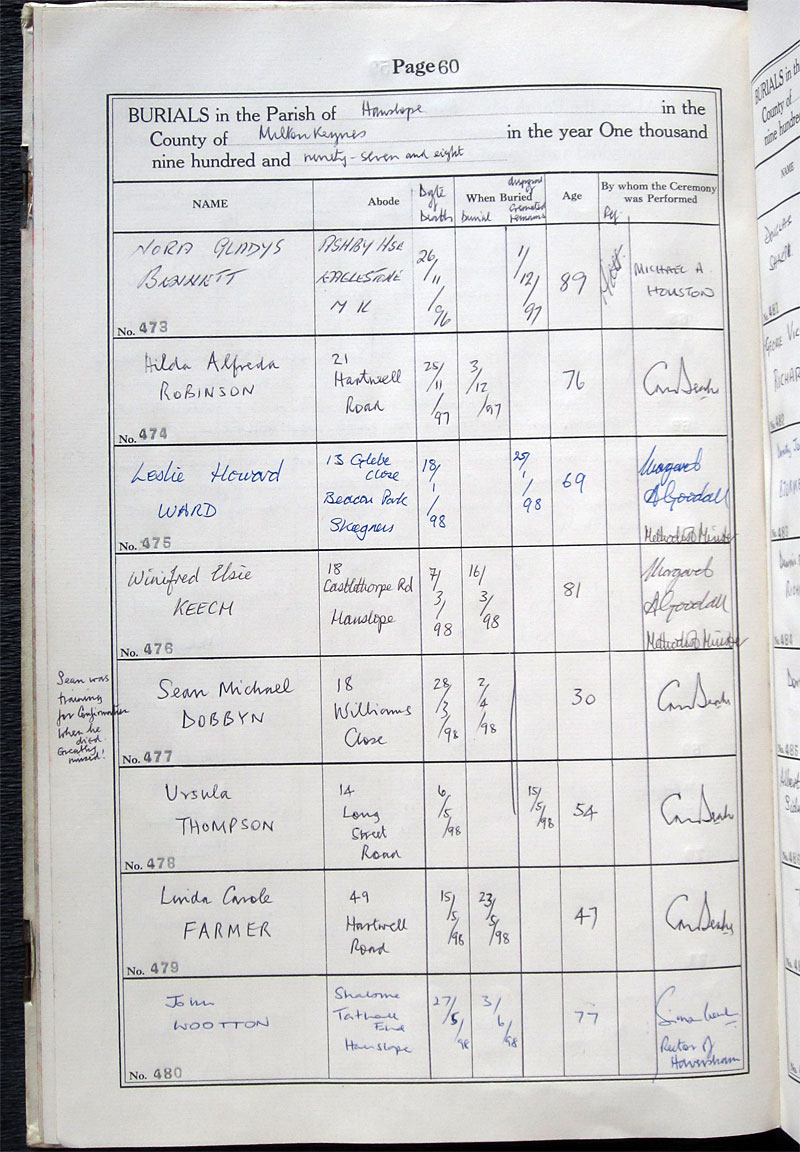 Page 60
BURIALS in the Parish of Hanslope in the
County of Milton Keynes in the year One thousand
nine hundred and ninety-seven and eight
NAME Abode Date of Death When Buried Burial disposal of Cremated remains Age By whom the Ceremony was Performed
NORA GLADYS BENNETT
ASHBY HSE EAGLESTONE M K
26/11/96
1/12/97
89
MICHAEL A HOUSTON
No. 473
Hilda Alfreda ROBINSON
21 Hartwell Road
25/11/97
3/12/97
76
No. 474
Leslie Howard WARD
13 Glebe Close Beacon Park Skegness
18/1/98
/98
69
Margaret A Goodall Methodist Minister
No. 475
Winifred Elsie KEECH
18 Castlethorpe Rd Hanslope
7/3/98
16/3/98
81
Margaret A Goodall Methodist Minister
No. 476
Sean was
training
for Confirmation
when he
died.
Greatly
missed!
Sean Michael DOBBYN
18 Williams Close
28/3/98
2/4/98
30
No. 477
Ursula THOMPSON
14 Long Street Road
6/5/98
15/5/98
54
No. 478
Linda Carole FARMER
49 Hartwell Road
15/5/98
23/5/98
47
No. 479
John WOOTTON
Shalome Tathall End Hanslope
27/5/98
3/6/98
77
Rector of Haversham
No. 480